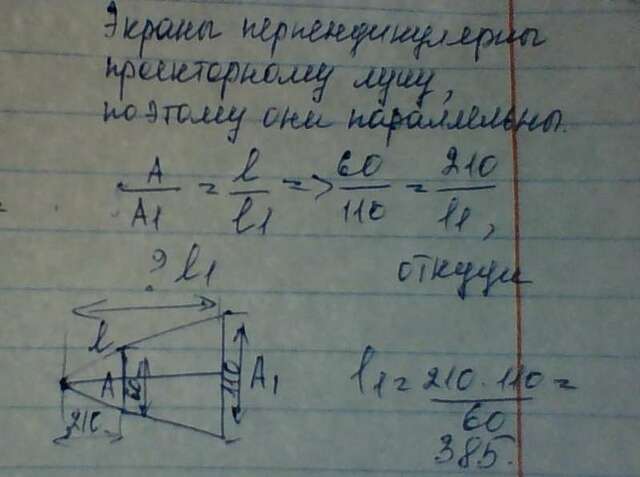 Экраны перпендикулярны
проекторному лучу,
поэтому они параллельны.
A/A1 = l/l1 => 60/110 = 210/l1,
? l1
откуда
l
A
60
110
A1
210
l1 = 210·110/60 =
385.